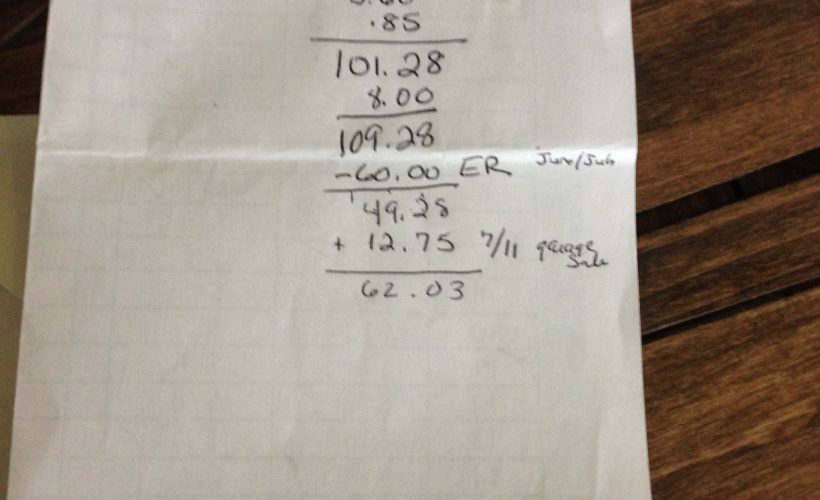 .85
101.28
8.00
109.28
-60.00 ER June/July
49.28
+ 12.75 7/11 garage
Sale
62.03